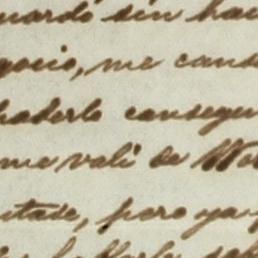 uardó sin hac
gocio, me cans
haderlo consegu
me vali de
ntase, pero ya